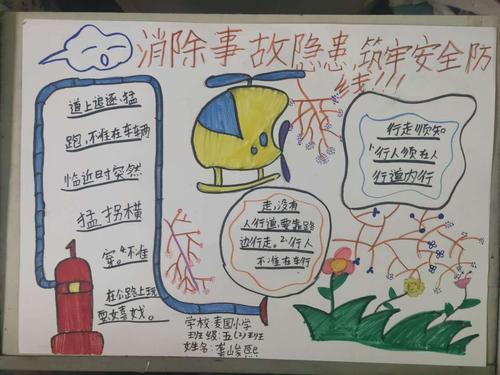 消除事故隐患,筑牢安全防
线!!!
行走须知
1.行人须在人
行道内行
走,没有
人行道,要靠路
边行走。2.行人
不准在车行
道上追逐、猛
跑,不准在车辆
临近时突然
猛拐横
穿。4.不准
在公路上现
耍嬉戏。
学校:麦园小学
班级:五(2)班
姓名:龚峻熙